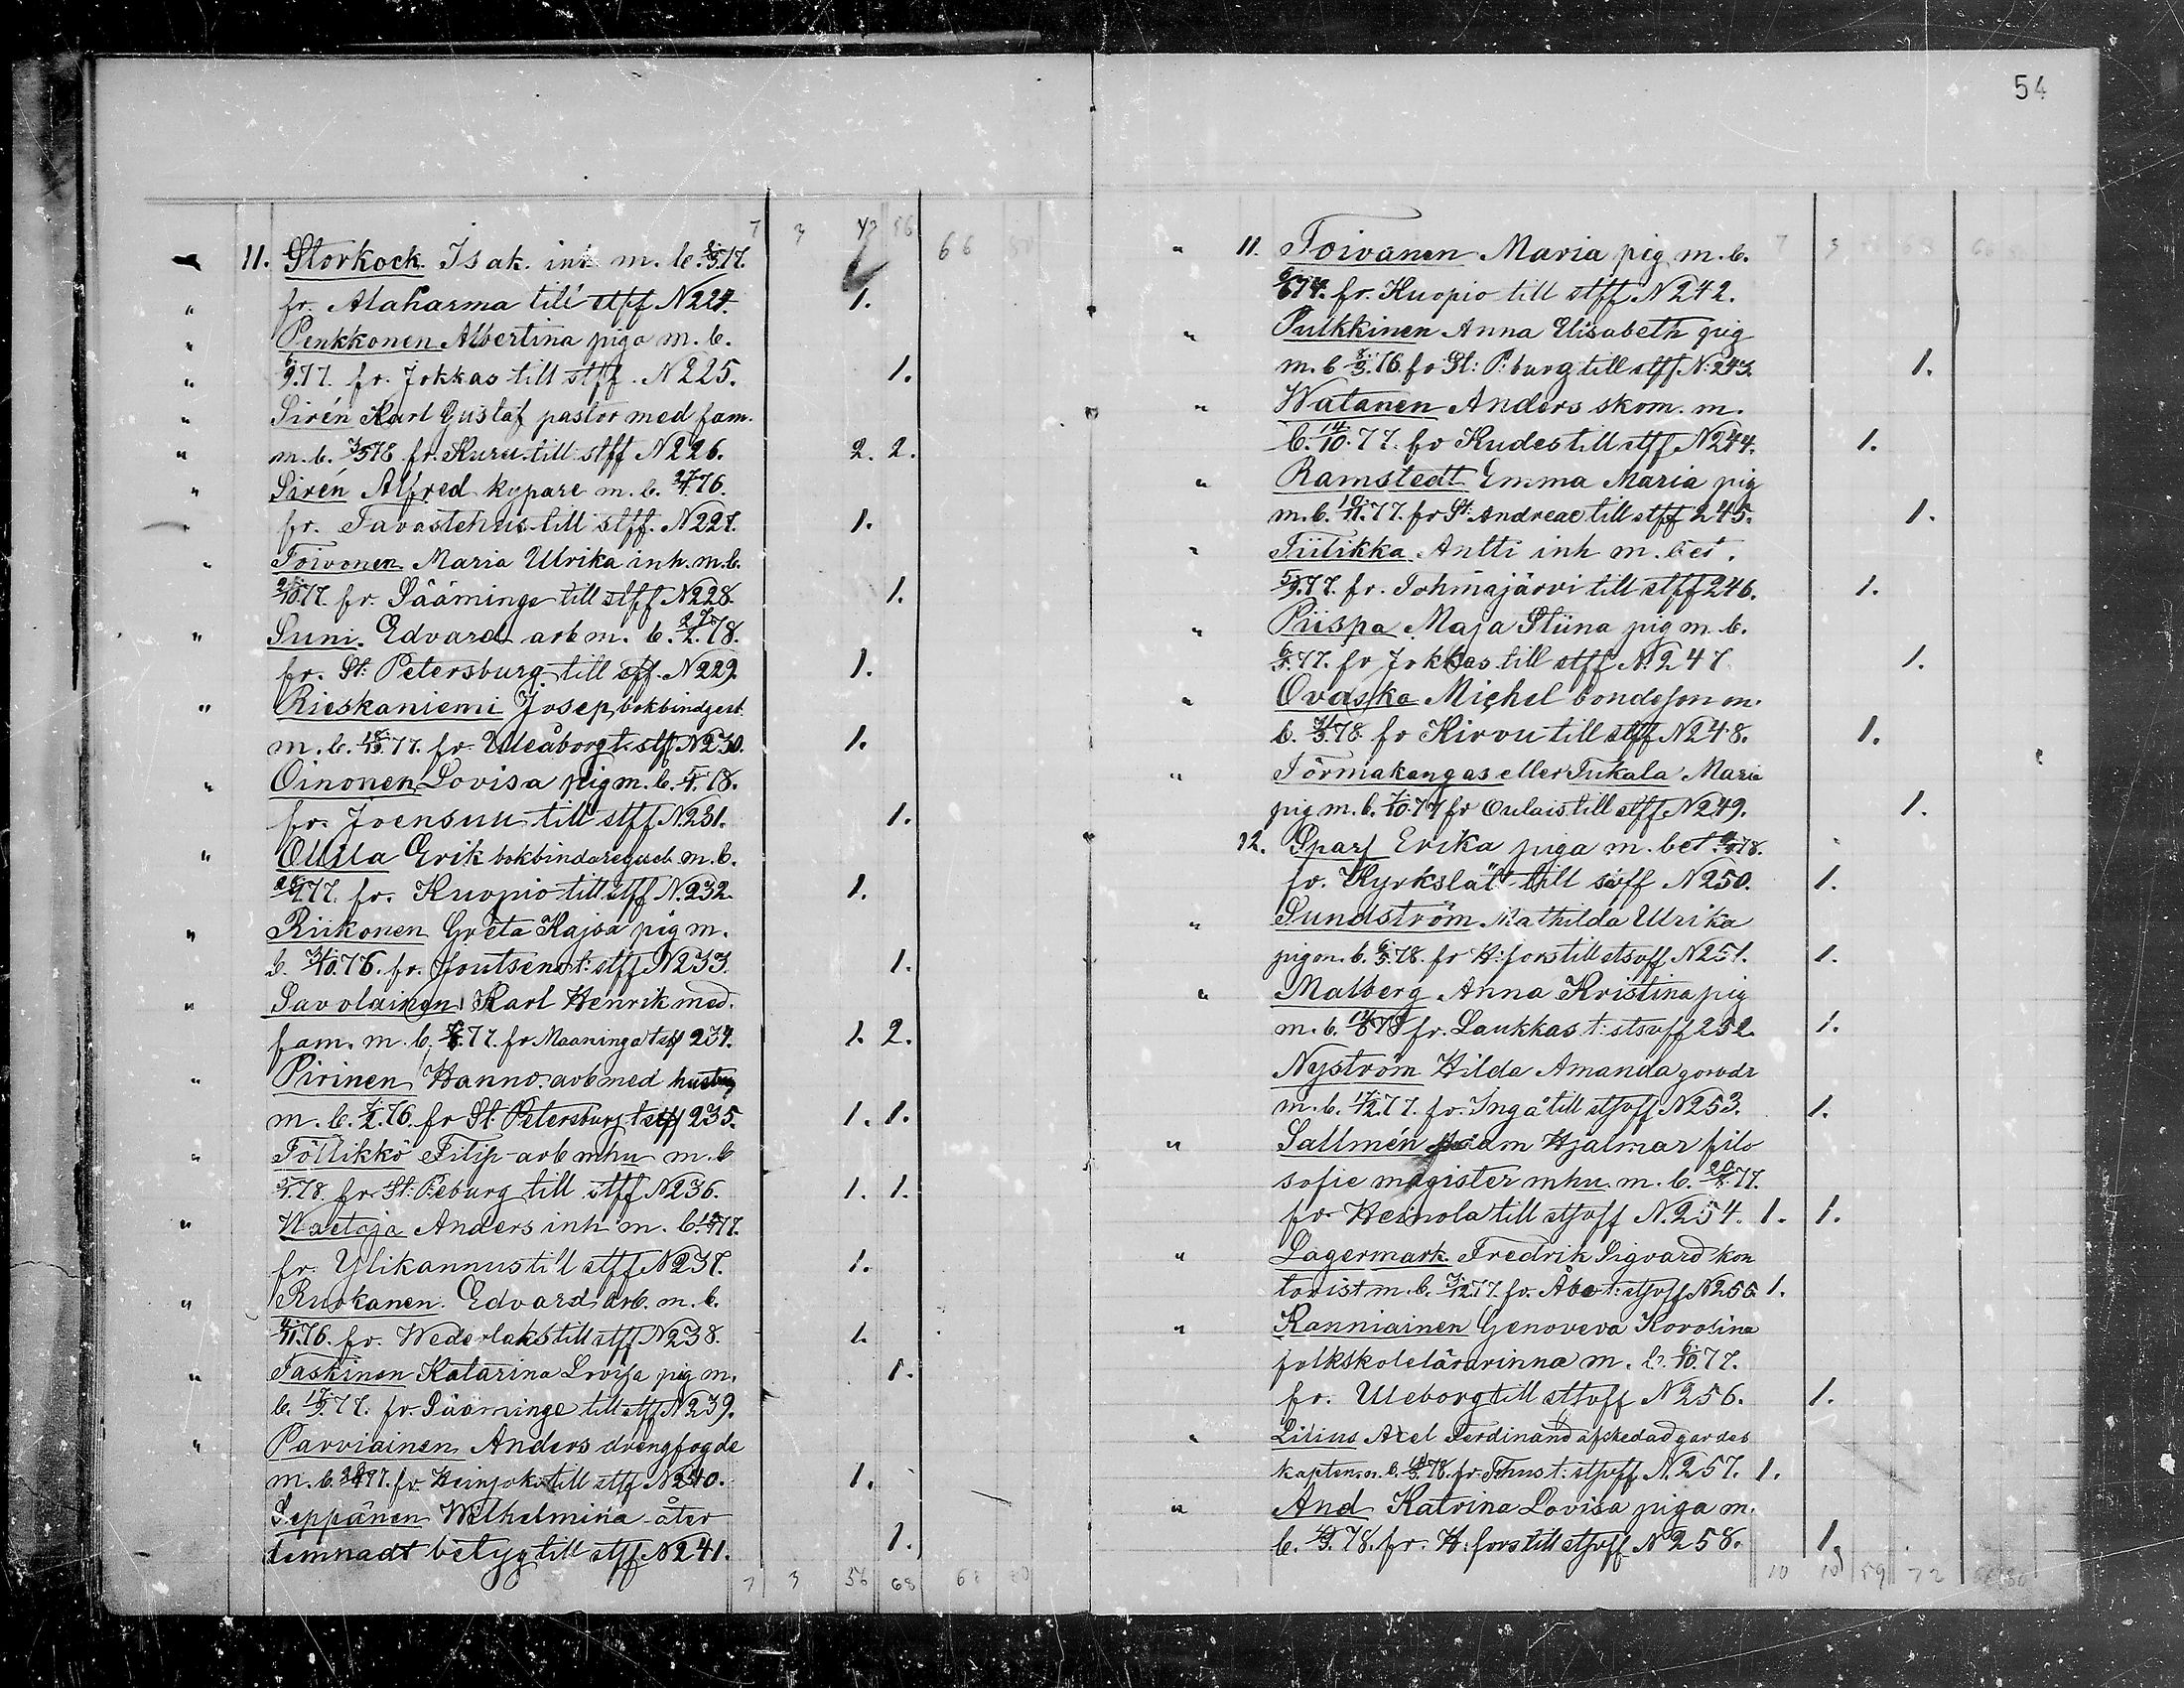 54
7 3 43 56 66 80
11. Storkock Isak. inh m. b. 2/5.17.
" fr. Alaharma till stff N 224. 1.
" Penkkonen Albertina piga m. b.
" 6/9.77. fr. Jokkas till stff. N 225. 1.
" Sirén Karl Gustaf pastor med fam.
" m. b. 7/5 78 fr. Kuru till stff N 226. 2. 2.
" Sirén Alfred kypare m. b. 27/4.76.
" fr. Tavastehus till stff. N 227. 1.
" Toivonen Maria Ulrika inh. m. b.
2/10 77. fr. Sääminge till stff N 228. 1.
" Suni. Edvard arb m. b. 27/2.78.
fr. St: Petersburg till stff. N 229. 1.
" Rieskaniemi Josep, bokbindgest.
m. b. 18/10.77. fr. Uleåborg t. stff N 230. 1.
" Oinonen Lovisa pig m. b. 5/4.78.
fr. Joensuu till stff N. 231. 1.
" Ollila Erik bokbindaregesel. m. b.
28/4.77. fr. Kuopio till stff N. 232. 1.
" Riikonen Greta Kajsa pig m.
b. 31/10.76. fr. Joutseno t: stff N 233. 1.
" Savolainen Karl Henrik med
fam. m. b. 7/8.77. fr Maaninga t stff 234. 1. 2.
" Pirinen Hanno. arb med hustru
m. b. 7/2.76. fr St. Petersburg t stff 235. 1. 1.
" Föllikkö Filip arb mhu m. b
5/4.78. fr. St: P:eburg till stff N 236. 1. 1.
" Waetoja Anders inh m. b. 77.
fr. Ylikannus till stff N 237. 1.
" Ruokanen. Edvard arb. m. b.
4/11.76. fr. Wederlaks till stff N 238. 1.
" Taskinen Katarina Lovisa pig m. 1.
b. 17/9.77. fr. Sääminge till stff N 239.
" Parviainen Anders drengfogde
m. b. fr. Heinjoki till stff N 240. 1.
Seppänen Wilhelmina åter
lemnadt betyg till stff N 241. 1.
7 3 56 68 68 80
" 11. Toivanen Maria pig m. b.
6/6 74. fr. Kuopio till stff N 242.
" Pulkkinen Anna Elisabeth pig
m. b 8/3.76. fr St: P:burg till stff N: 243. 1.
" Watanen Anders skom. m.
b. 14/10.77. fr Rudes till stff N 244. 1.
" Ramstedt Emma Maria pig
m. b. 10/11.77. fr St: Andreae till stff 245. 1.
" Tiilikka Antti inh m. bet.
5/9.77. fr. Tohmajärvi till stff 246. 1.
" Piispa Maja Stiina pig m. b.
6/9.77. fr Jokkas till stff N: 247 1.
" Ovaska Michel bondeson m.
b. 4/3.78. fr Kirvu till stff N 248. 1.
" Törmakangas eller Tukala Maria
pig m. b. 7/10.77 fr Oulais till stff N 249. 1.
12. Sparf Erika piga m. bet 78.
fr. Kyrkslätt till stsoff N 250. 1.
" Sundström Mathilda Ulrika
pig m. b. 6/3.78. fr H:fors till stsoff N 251. 1.
" Malberg Anna Kristina pig
m. b. 14/6 78 fr. Laukkas t: stsoff 252. 1.
Nyström Hilda Amanda gorodr
m. b. 17/2.77. fr. Ingå till stsoff N 253. 1.
" Sallmén Adam Hjalmar filo
sofie magister mhu. m. b. 20/4.77.
fr Heinola till stsoff N. 254. 1. 1.
" Lagermark Fredrik Sigvard kon
torist m. b. 3/12.77. fr. Åbo t: stsoff N 255 1.
" Ranniainen Genoveva Karolina
folkskolelärarinna m. b. 6/10.77.
fr. Uleborg till stsoff N 256. 1.
" Lilius Axel Ferdinand afskedad gardes
kapten m. b. 14/3.78. fr. Thus t: stsoff N. 257. 1.
" And Katrina Lovisa piga m.
b. 4/3.78. fr. H:fors till stsoff N 258. 1.
10 10 59 72 68 80